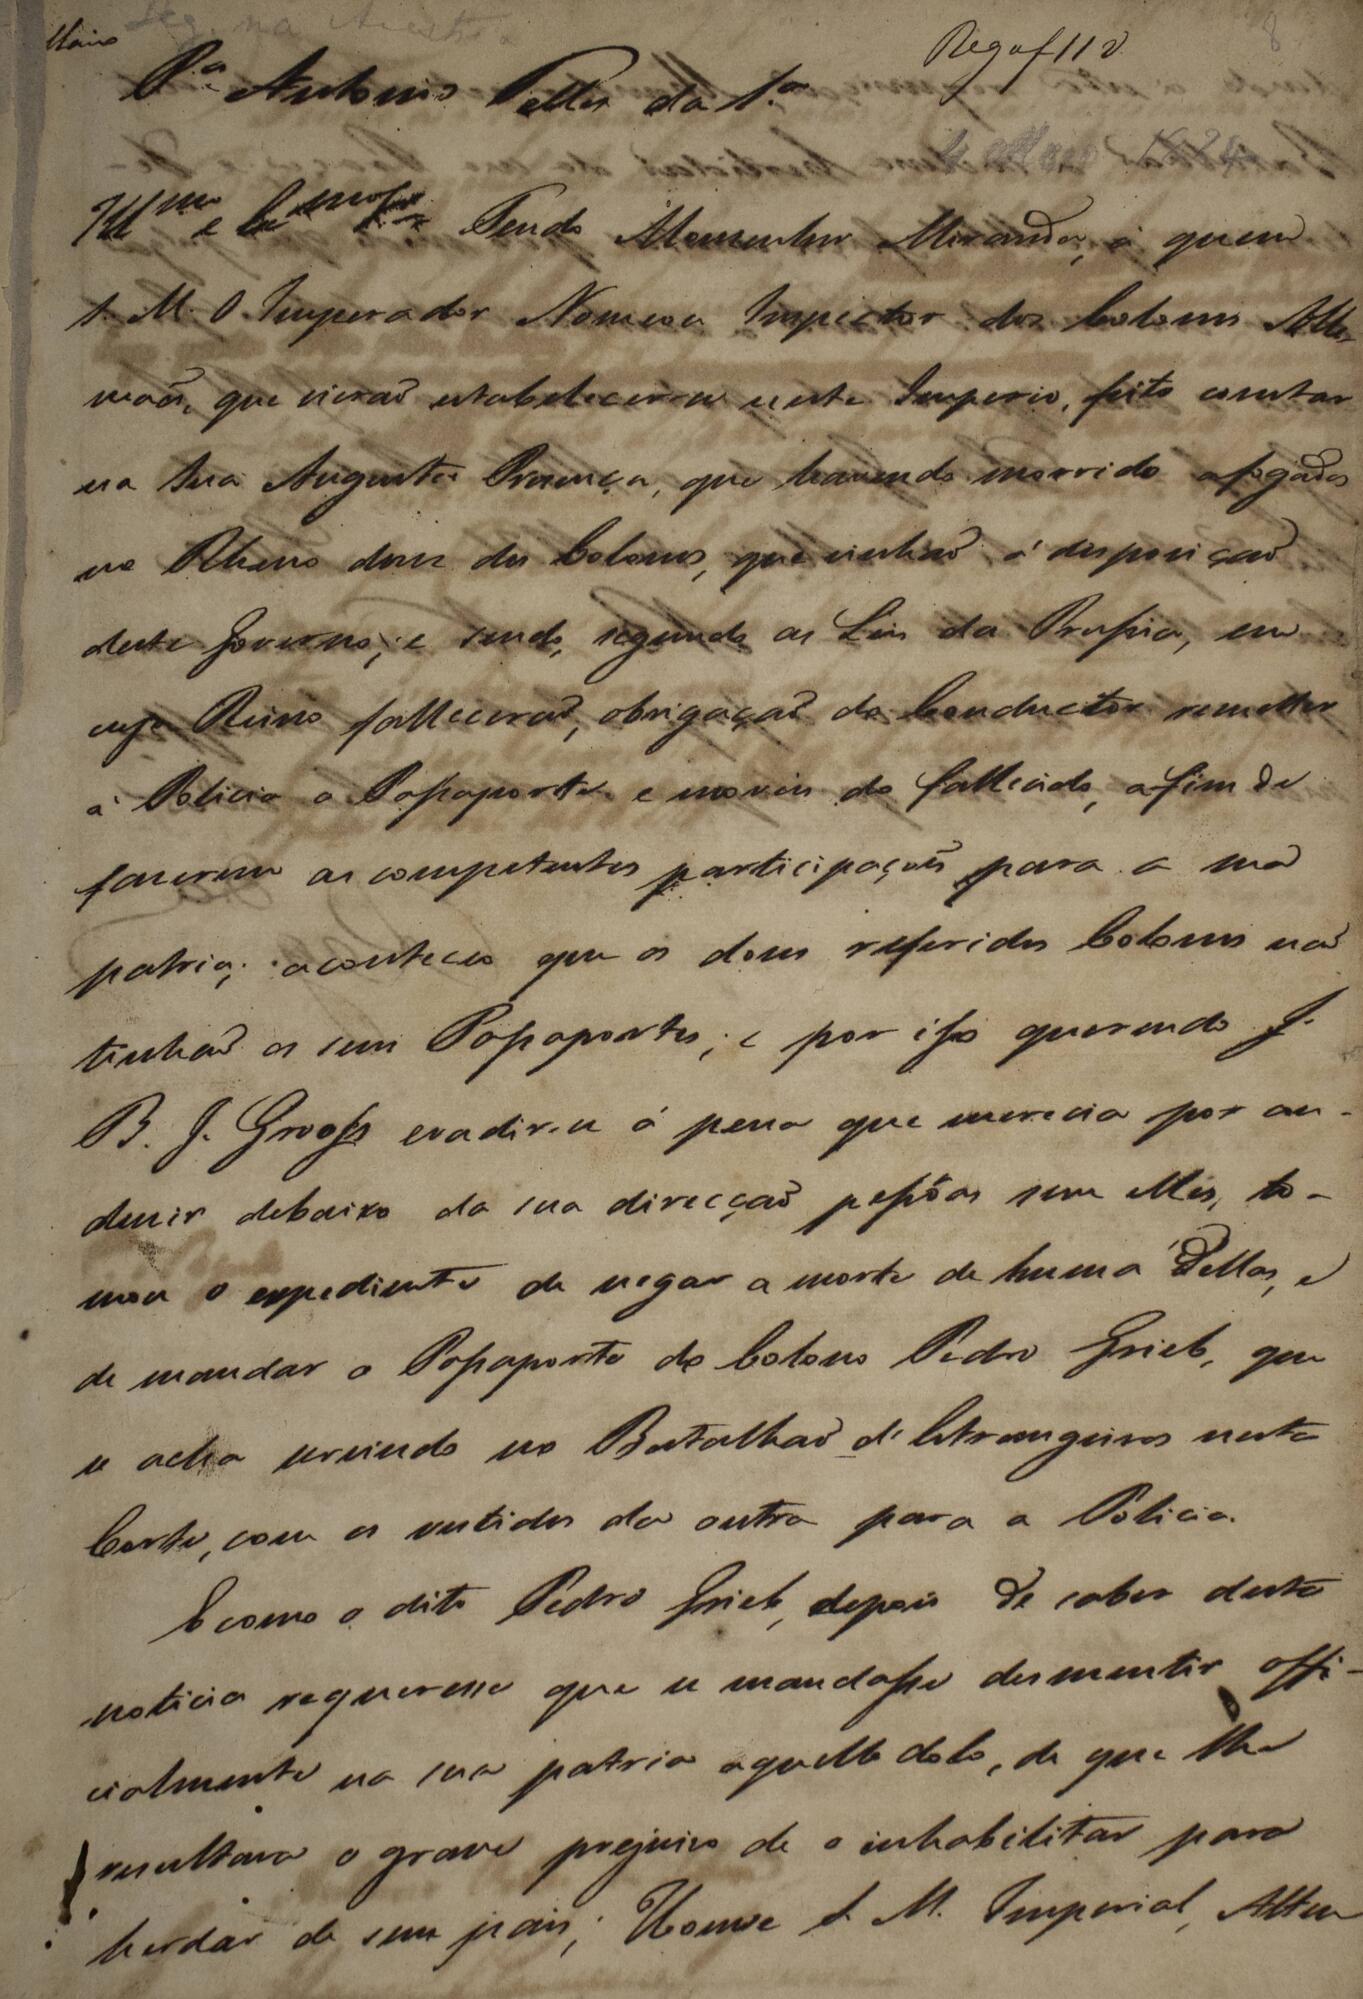 Reg. af 112
P.ª Antonio Telles da S.ª
Ill.mo e Ex.mo Snr Tendo Monsenhor Miranda, á quem
S. M. O Imperador Nomeou Inspector dos Colonos Alle-
mães, que vierão estabelecer-se neste Imperio, feito constar
na Sua Augusta Prezença, que havendo morrido afogados
no Rheno dous dos Colonos, que vinhão á disposição
deste Governo; e sendo, segundo as Leis da Prussia, em
cujo Reino fallecerão, obrigação do Conductor remetter
á Policia o Passaporte e moveis do fallecido, afim de
fazerem as competentes participações para a sua
patria; aconteceo que os dous referidos Colonos não
tinhão os seus Passaportes; e por isso querendo J.
B. J. Grooss evadir-se á pena que merecia por con-
duzir debaixo da sua direcção pessôas sem elles, to-
mou o expediente de negar a morte de huma dellas, e
de mandar o Passaporte do Colono Pedro Grieb, que
se acha servindo no Batalhão d'Estrangeiros nesta
Corte, com os vestidos da outra para a Policia.
E como o dito Pedro Grieb, depois de saber desta
noticia requeresse que se mandasse desmentir offi-
cialmente na sua patria aquelle dolo, de que lhe
resultava o grave prejuizo de o inhabilitar para
herdar de seus pais; Houve S. M. Imperial, Atten